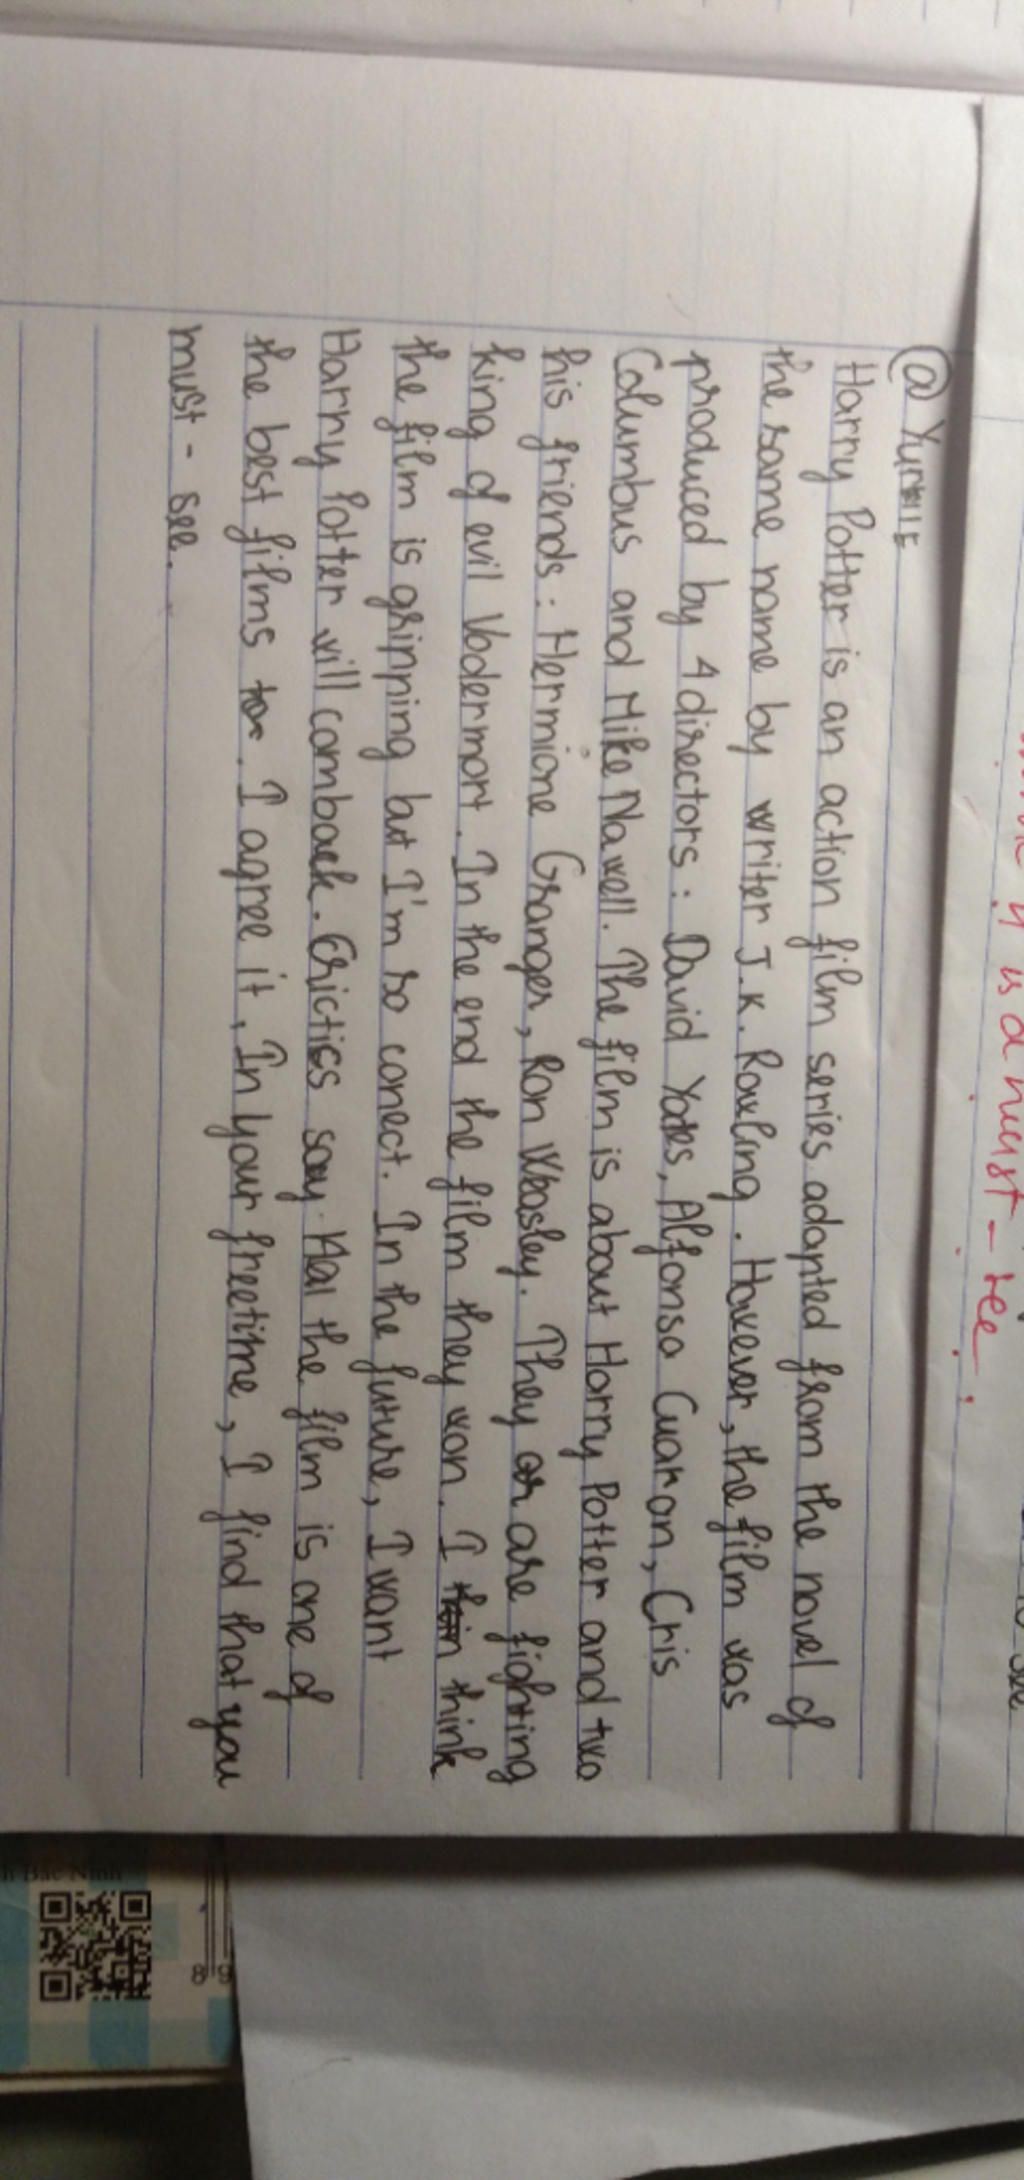 @ Yun
Harry Potter is an action film series adapted from the novel of
the same name by writer J.K. Rowling. However, the film was
produced by 4 directors: David Yates, Alfonso Cuaron, Cris
Columbus and Mike Nawell. The film is about Harry Potter and two
his friends: Hermione Granger, Ron Weasley. They are fighting
king of evil Vodermort. In the end the film they won. I think
the film is gripping but I'm so conect. In the future, I want
Harry Potter will comback. Crictics say the film is one of
the best films. I agree it. In your freetime, I find that you
must - see.
is a must - see.
h Bắc Ninh
89